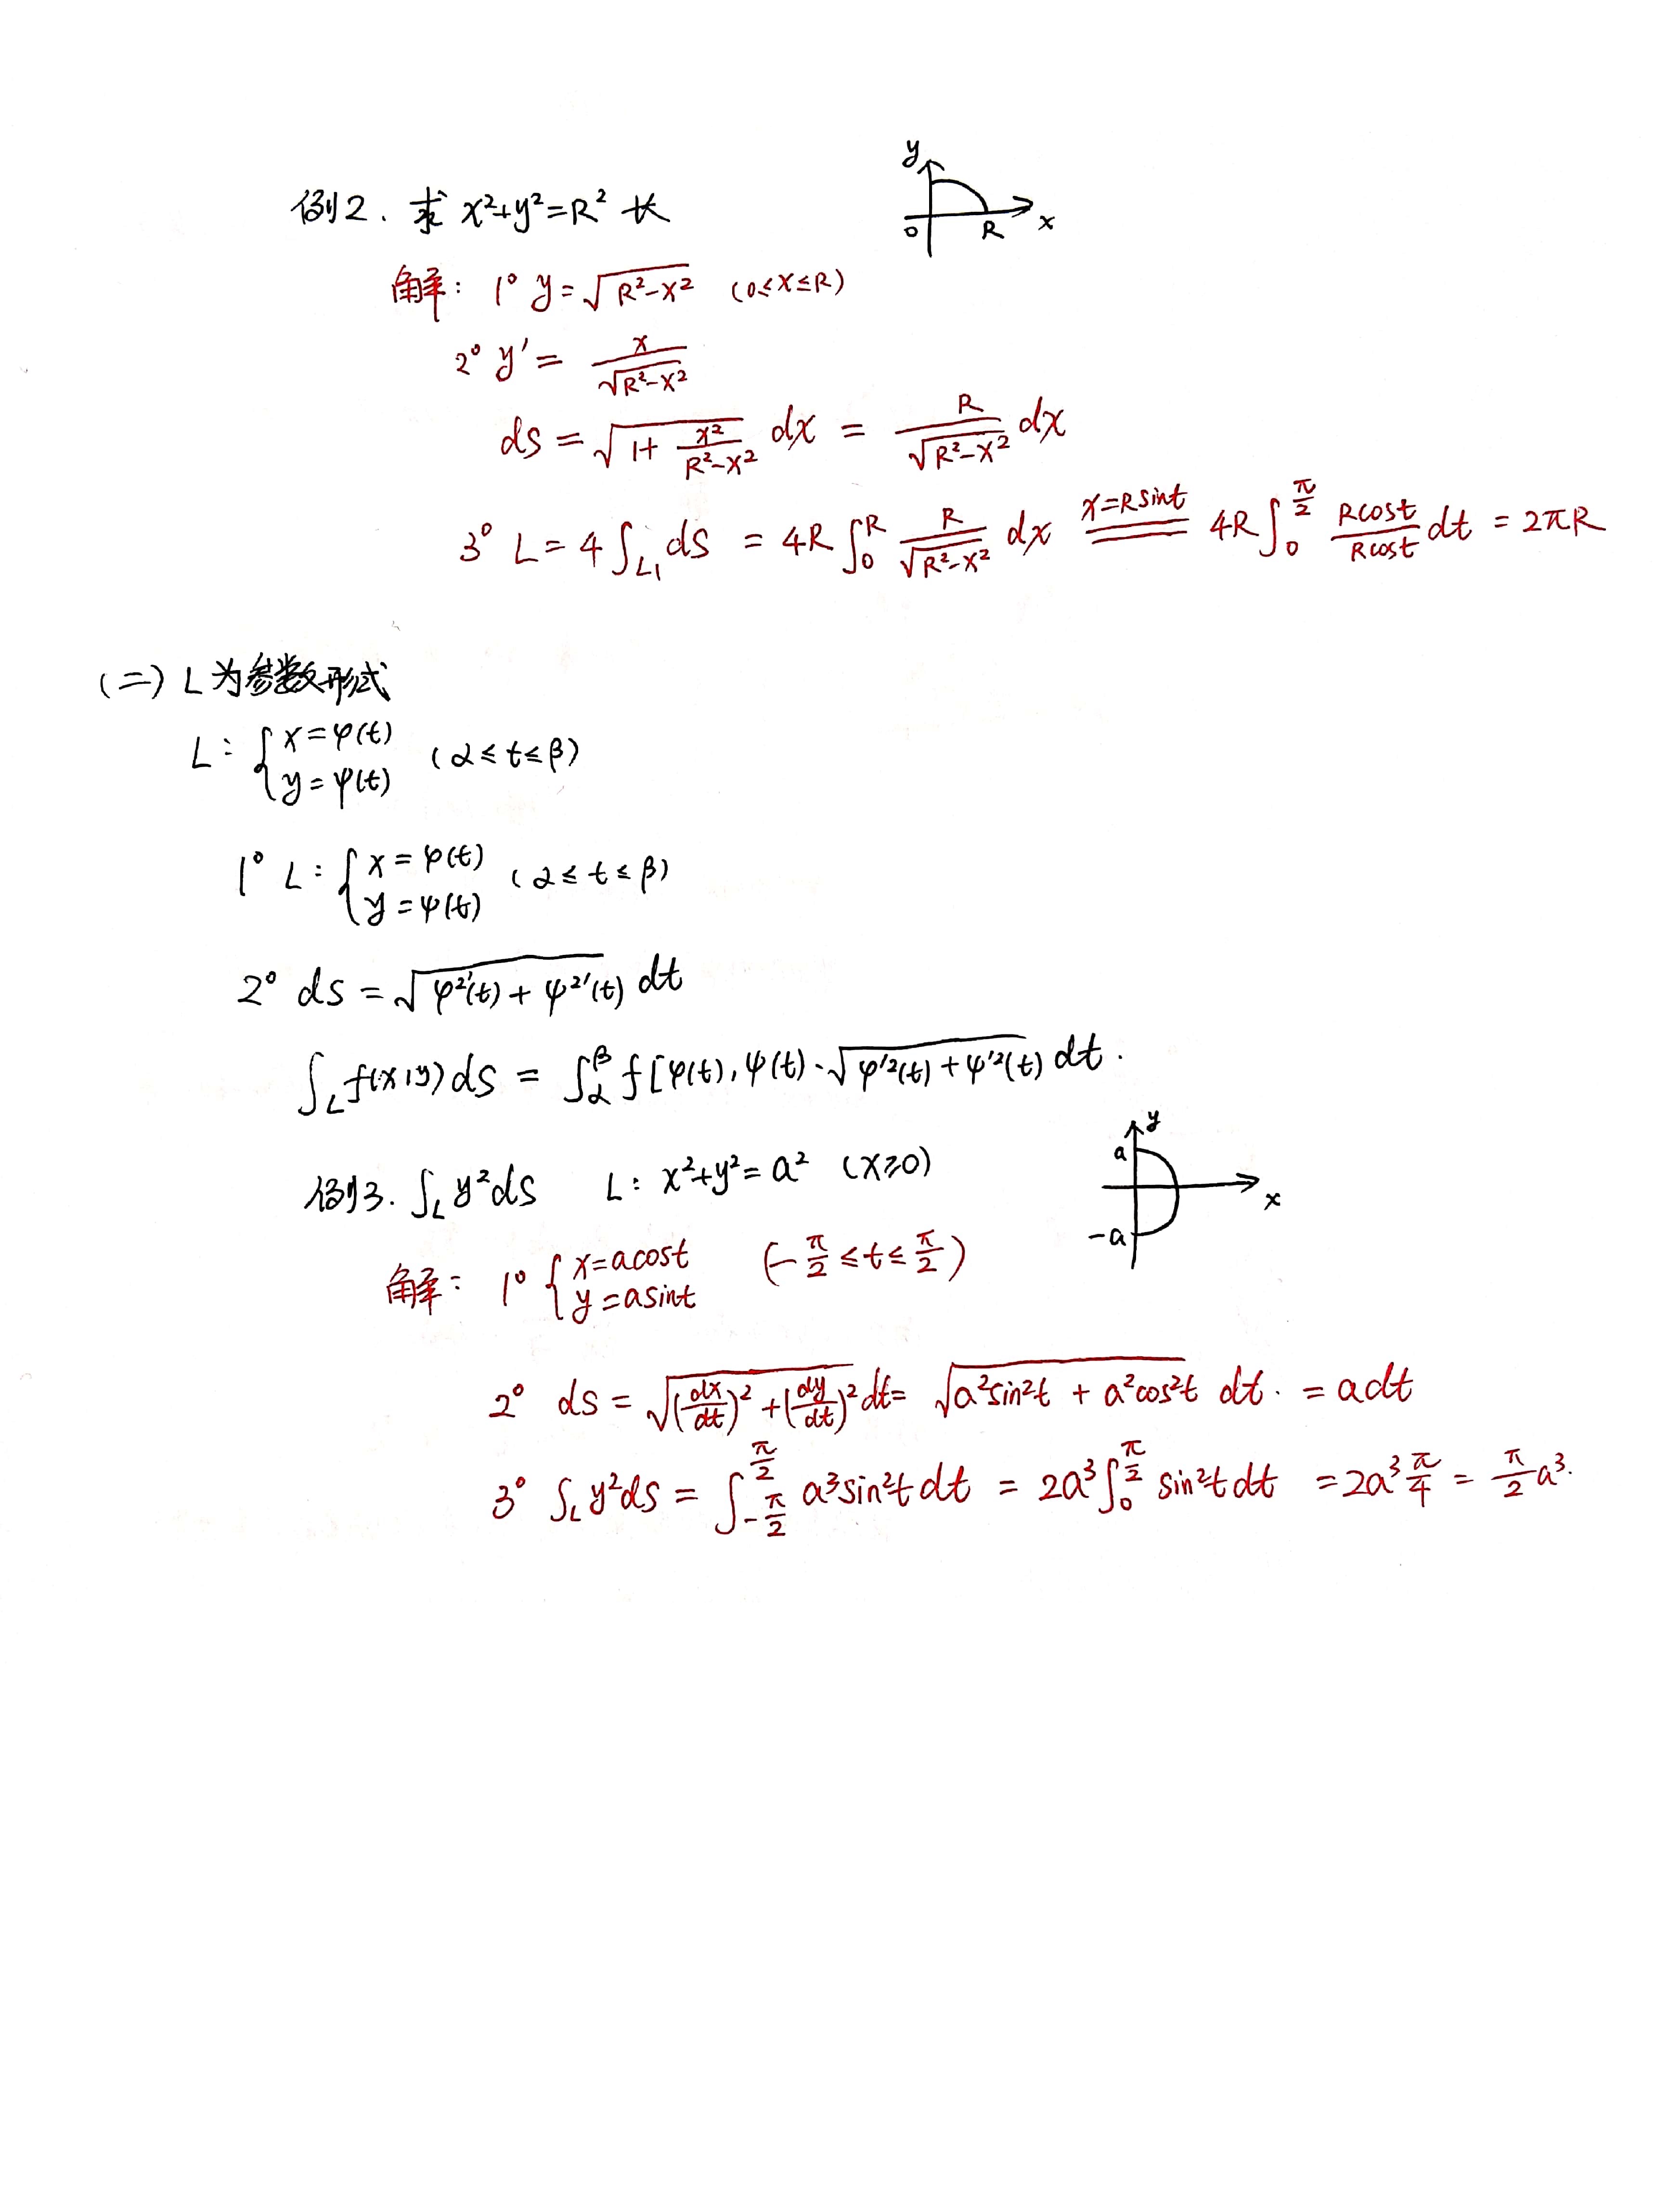 例2. 求 x²+y²=R² 长
y
0 R x
解: 1° y=√(R²-x²) (0≤x≤R)
2° y′= x/√(R²-x²)
ds = √(1+ x²/(R²-x²)) dx = R/√(R²-x²) dx
3° L=4∫_{L₁} ds = 4R∫₀^R R/√(R²-x²) dx x=Rsint 4R∫₀^{π/2} Rcost/Rcost dt = 2πR
(二) L为参数形式
L: { x=φ(t)
y=ψ(t) (α≤t≤β)
1° L: { x=φ(t)
y=ψ(t) (α≤t≤β)
2° ds = √(φ²′(t)+ψ²′(t)) dt
∫_L f(x,y)ds = ∫_α^β f[φ(t),ψ(t)·√(φ′²(t)+ψ′²(t)) dt.
例3. ∫_L y²ds L: x²+y²=a² (x≥0)
y
a
x
-a
解: 1° { x=acost
y=asint (-π/2≤t≤π/2)
2° ds = √((dx/dt)²+(dy/dt)²) dt= √(a²sin²t + a²cos²t) dt. = adt
3° ∫_L y²ds = ∫_{-π/2}^{π/2} a³sin²t dt = 2a³∫₀^{π/2} sin²t dt =2a³ π/4 = π/2 a³.